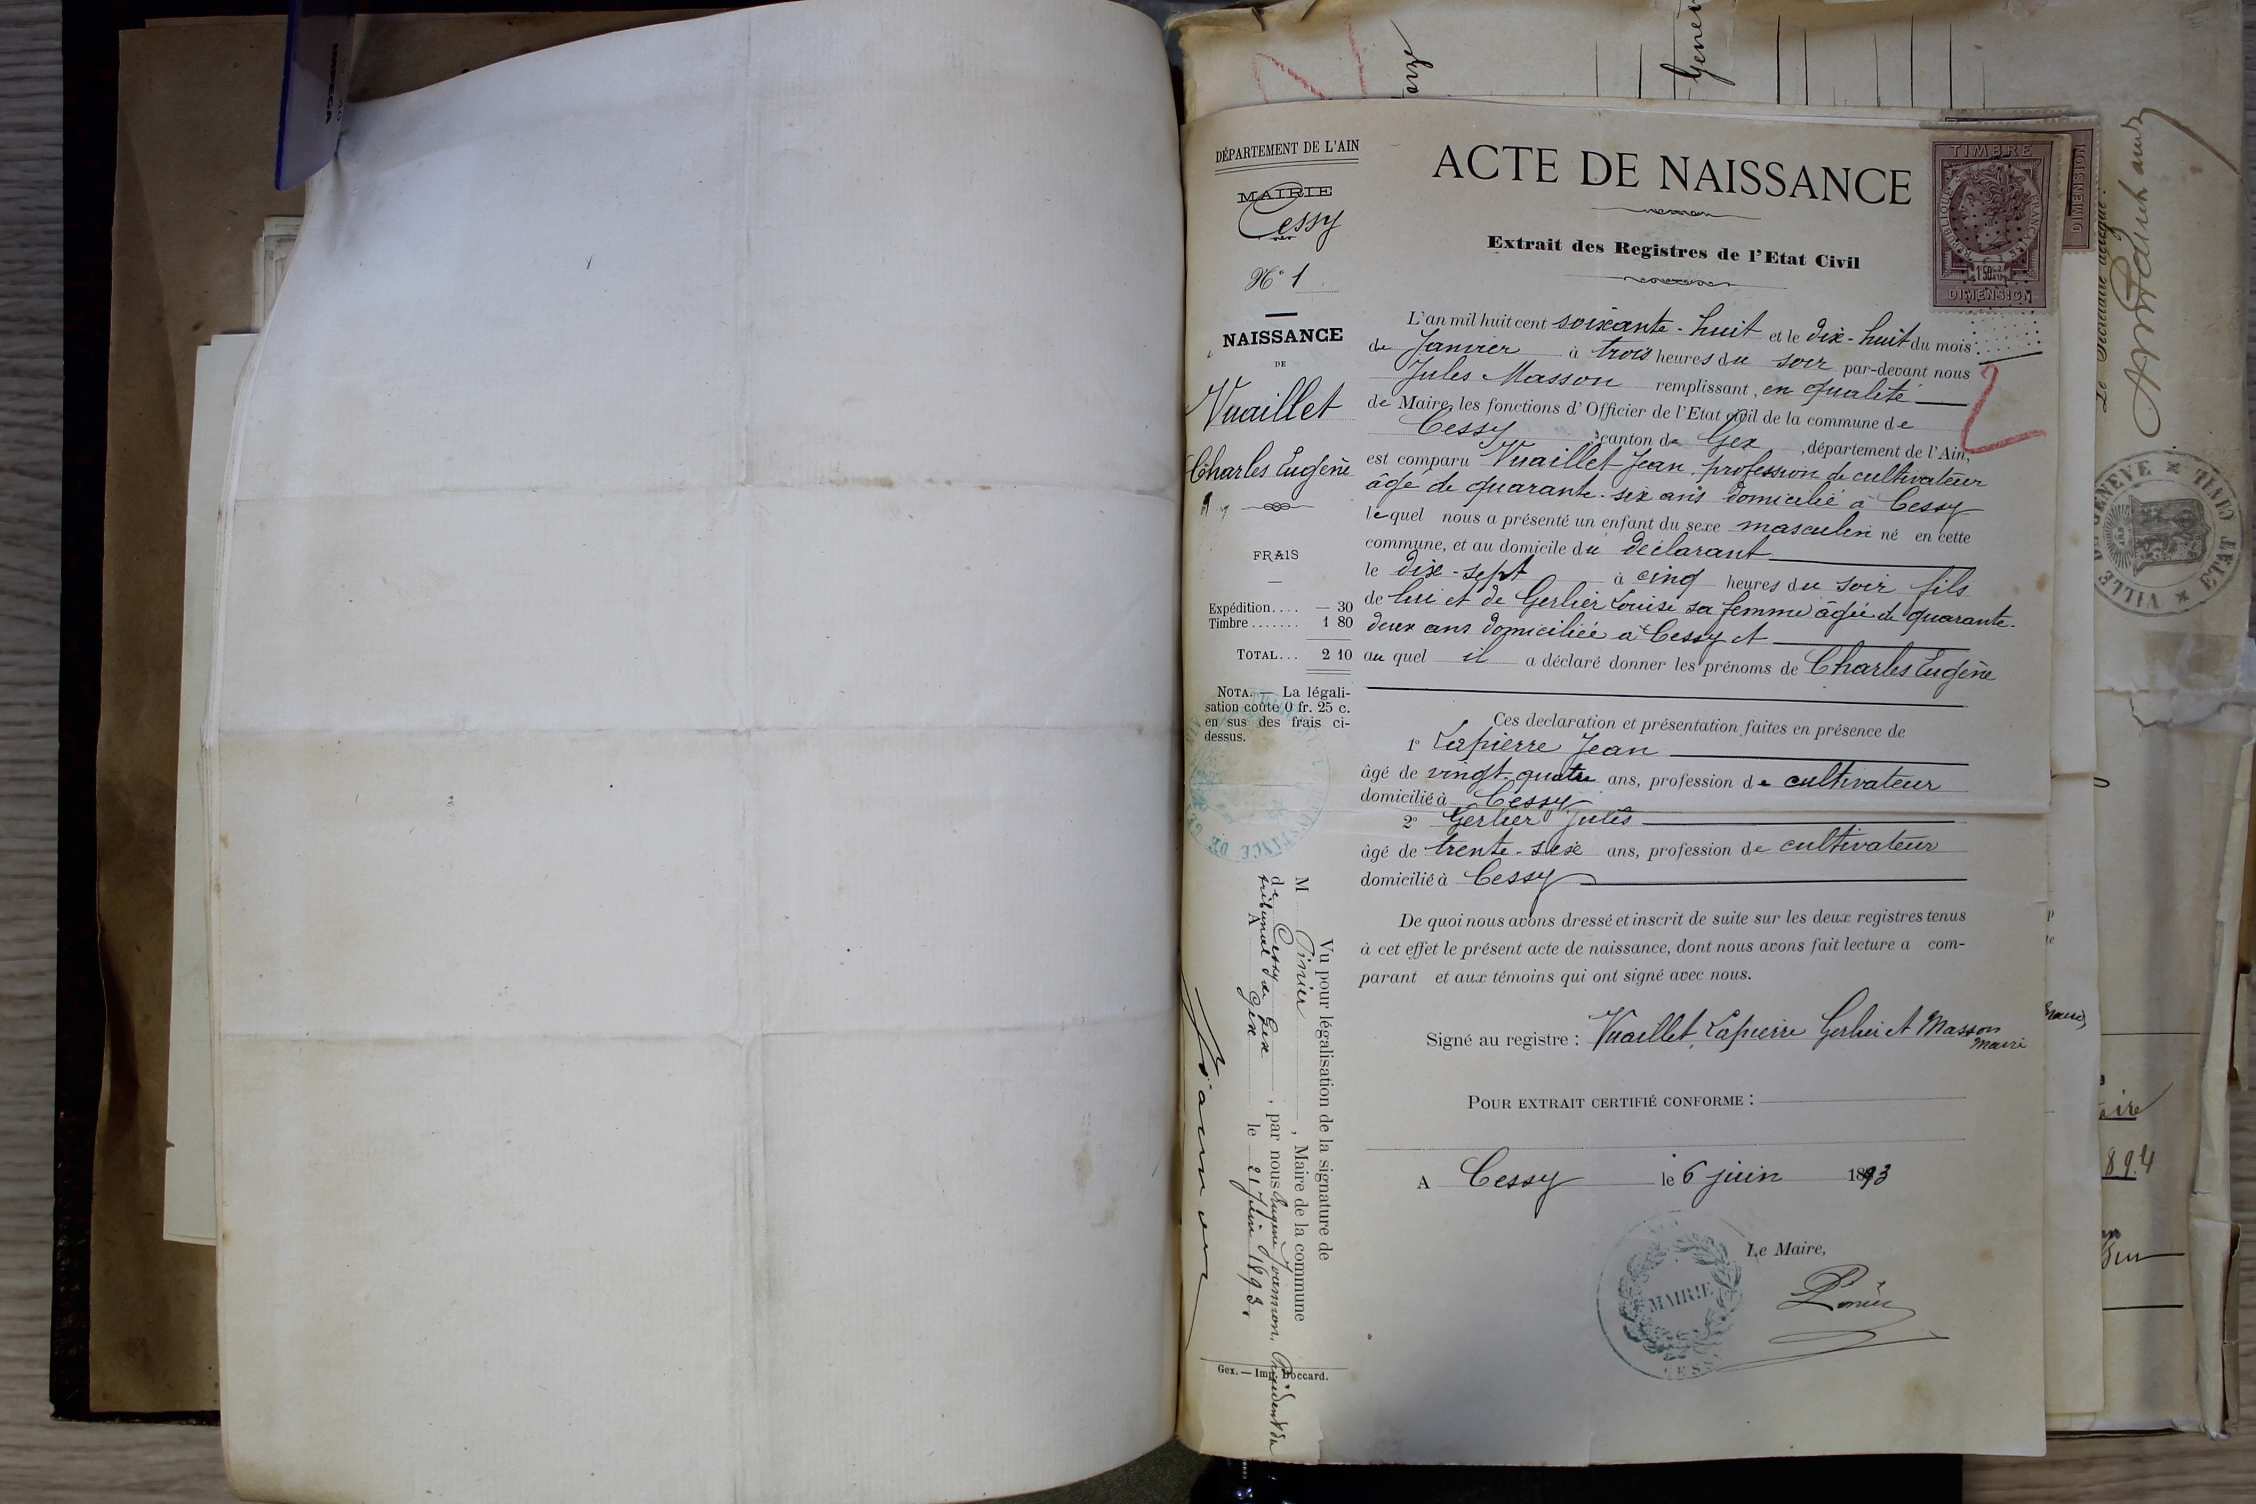 DÉPARTEMENT DE L'AIN
MAIRIE
Cessy
N° 1
NAISSANCE
DE
Vuaillet
Charles Eugène
FRAIS
Expédition.... — 30
Timbre....... 1 80
TOTAL... 2 10
NOTA. — La légali-
sation coûte 0 fr. 25 c.
en sus des frais ci-
dessus.
ACTE DE NAISSANCE
Extrait des Registres de l'Etat Civil
TIMBRE
REPUBLIQUE FRANÇAISE
DIMENSION
DIMENSION
L'an mil huit cent soixante-huit et le dix-huit du mois
de Janvier à trois heures du soir par-devant nous
Jules Masson remplissant, en qualité
de Maire, les fonctions d'Officier de l'Etat civil de la commune de
Cessy canton de Gex, département de l'Ain,
est comparu Vuaillet Jean, profession de cultivateur
âgé de quarante-six ans domicilié à Cessy
lequel nous a présenté un enfant du sexe masculin né en cette
commune, et au domicile du déclarant
le dix-sept à cinq heures du soir fils
de lui et de Gerlier Louise sa femme âgée de quarante-
deux ans domiciliée à Cessy et
auquel il a déclaré donner les prénoms de Charles Eugène
Ces declaration et présentation faites en présence de
1° Lapierre Jean
âgé de vingt-quatre ans, profession de cultivateur
domicilié à Cessy
2° Gerlier Jules
âgé de trente-six ans, profession de cultivateur
domicilié à Cessy
De quoi nous avons dressé et inscrit de suite sur les deux registres tenus
à cet effet le présent acte de naissance, dont nous avons fait lecture a com-
parant et aux témoins qui ont signé avec nous.
Signé au registre : Vuaillet, Lapierre Gerlier et Masson
maire
POUR EXTRAIT CERTIFIÉ CONFORME :
A Cessy le 6 juin 1893
Le Maire,
MAIRIE
Vu pour légalisation de la signature de
M Pinier, Maire de la commune
de Cessy, par nous Eugène Joannon, Président du
tribunal de Gex
A Gex le 21 juin 1893.
Gex. — Imp. Boccard.
VILLE DE GENÈVE
ETAT CIVIL
2